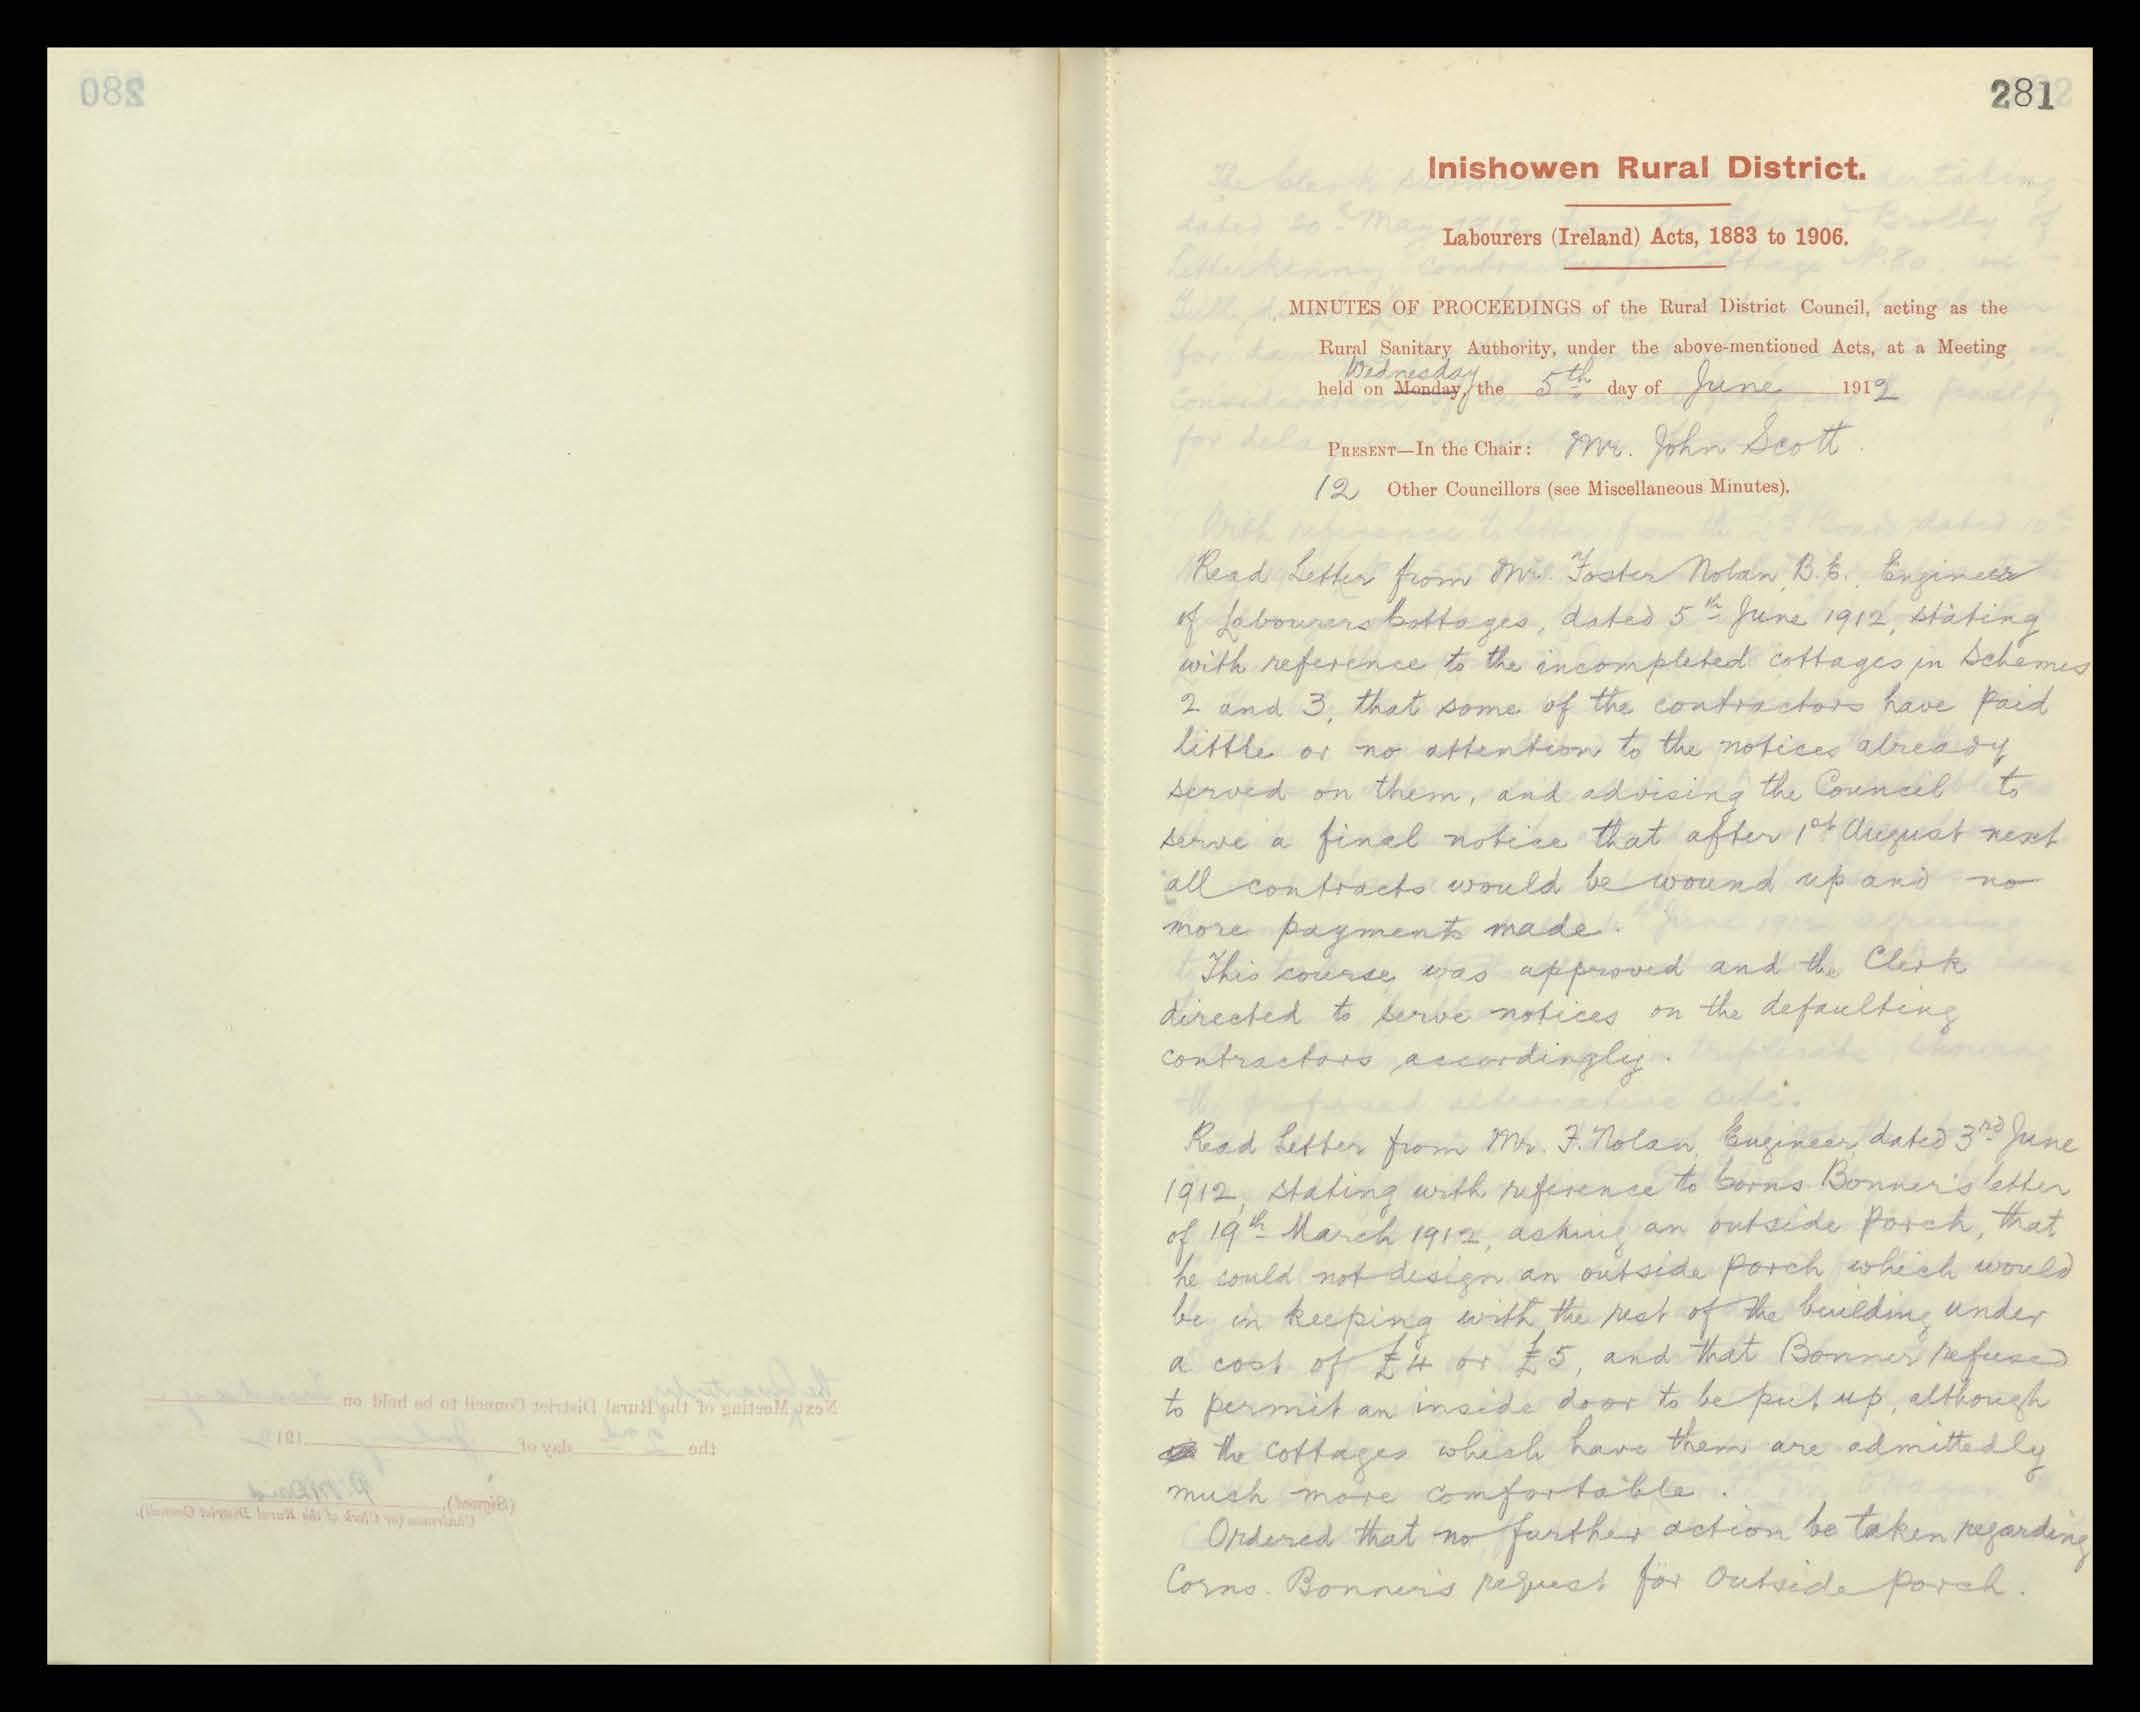 281
Inishowen Rural District.
Labourers (Ireland) Acts, 1883 to 1906.
MINUTES OF PROCEEDINGS of the Rural District Council, acting as the
Rural Sanitary Authority, under the above-mentioned Acts, at a Meeting
Wednesday
held on Monday, the 5th day of June 1912
PRESENT—In the Chair: Mr. John Scott.
12 Other Councillors (see Miscellaneous Minutes).
Read Letter from Mr. Foster Nolan, B.E., Engineer
of Labourers Cottages, dated 5th June 1912, stating
with reference to the incompleted cottages in Schemes
2 and 3, that some of the contractors have paid
little or no attention to the notices already
served on them, and advising the Council to
serve a final notice that after 1st August next
all contracts would be wound up and no
more payments made.
This course was approved and the Clerk
directed to serve notices on the defaulting
contractors accordingly.
Read Letter from Mr. F. Nolan, Engineer, dated 3rd June
1912, stating with reference to Corns. Bonner's letter
of 19th March 1912, asking an outside porch, that
he could not design an outside porch which would
be in keeping with the rest of the building under
a cost of £4 or £5, and that Bonner refused
to permit an inside door to be put up, although
the cottages which have them are admittedly
much more comfortable.
Ordered that no further action be taken regarding
Corns. Bonner's request for outside porch.